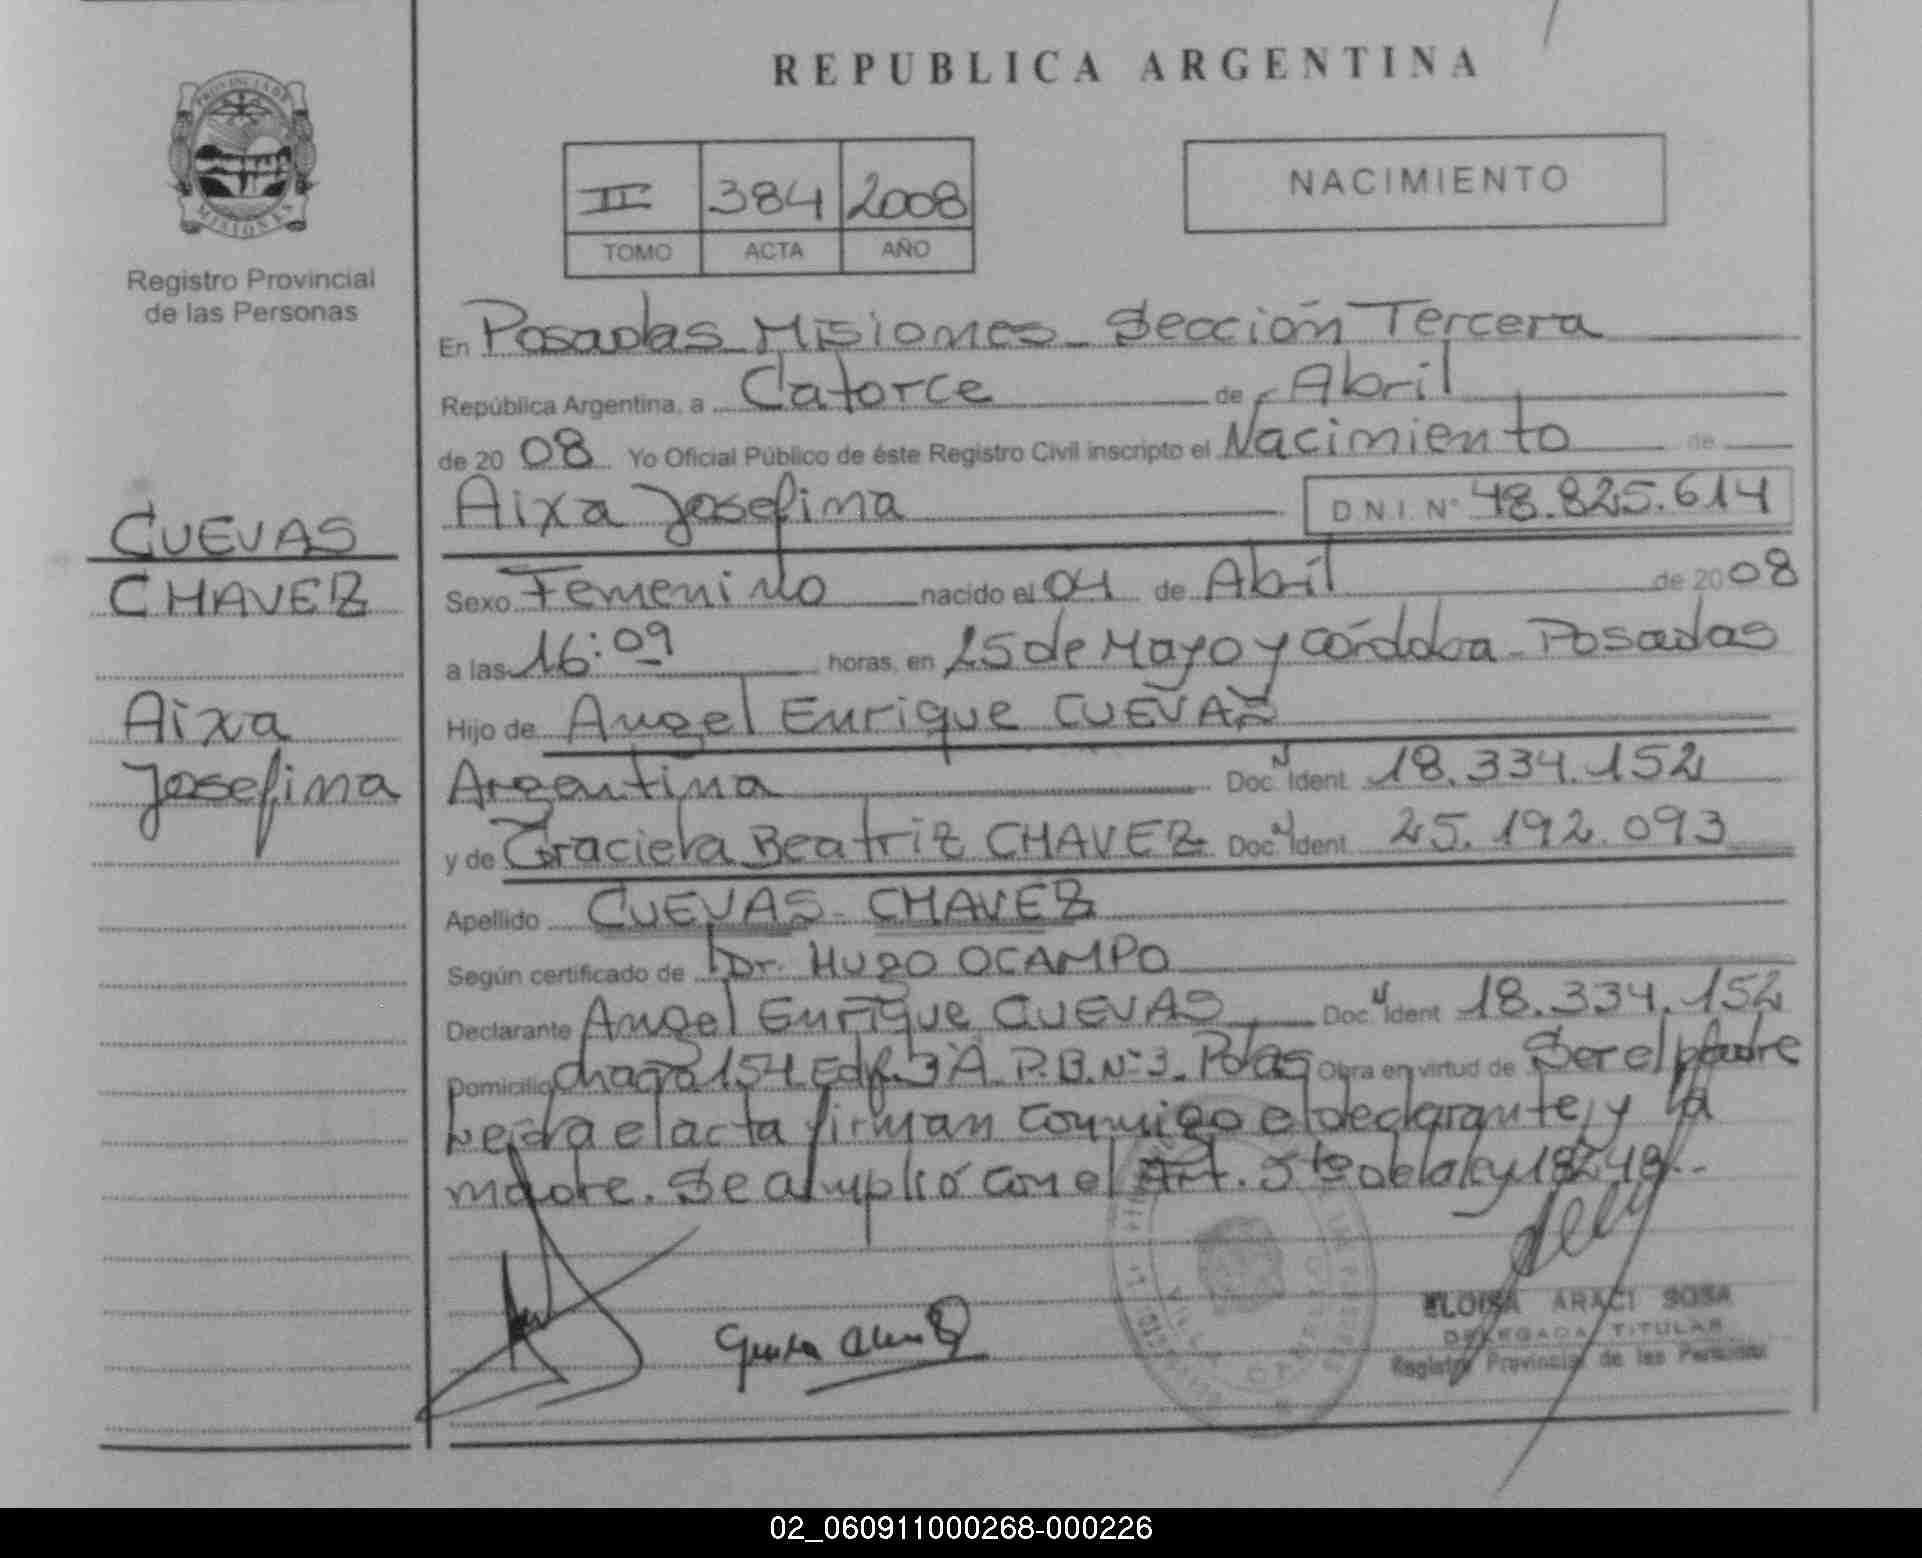 REPUBLICA ARGENTINA
PROVINCIA DE
MISIONES
Registro Provincial
de las Personas
II 384 2008
TOMO ACTA AÑO
NACIMIENTO
En Posadas Misiones - Sección Tercera
República Argentina, a Catorce de Abril
de 2008 Yo Oficial Público de éste Registro Civil inscripto el Nacimiento de
Aixa Josefina D.N.I. N° 48.825.614
CUEVAS
CHAVEZ
Aixa
Josefina
Sexo Femenino nacido el 04 de Abril de 2008
a las 16:09 horas, en 25 de Mayo y Córdoba - Posadas
Hijo de Angel Enrique CUEVAS
Argentina Doc. Ident. 18.334.152
y de Graciela Beatriz CHAVEZ Doc. Ident. 25.192.093
Apellido CUEVAS - CHAVEZ
Según certificado de Dr. HUGO OCAMPO
Declarante Angel Enrique CUEVAS Doc. Ident 18.334.152
Domicilio 154 Edf. 3 A P.B. N° 3 - Pdas Obra en virtud de Ser el padre
Leida el acta firman conmigo el declarante, y la
madre. Se amplió con el Art. 5to de la ley 18248 --
ELOISA ARACI SOSA
DELEGADA TITULAR
Registro Provincial de las Personas
02_060911000268-000226